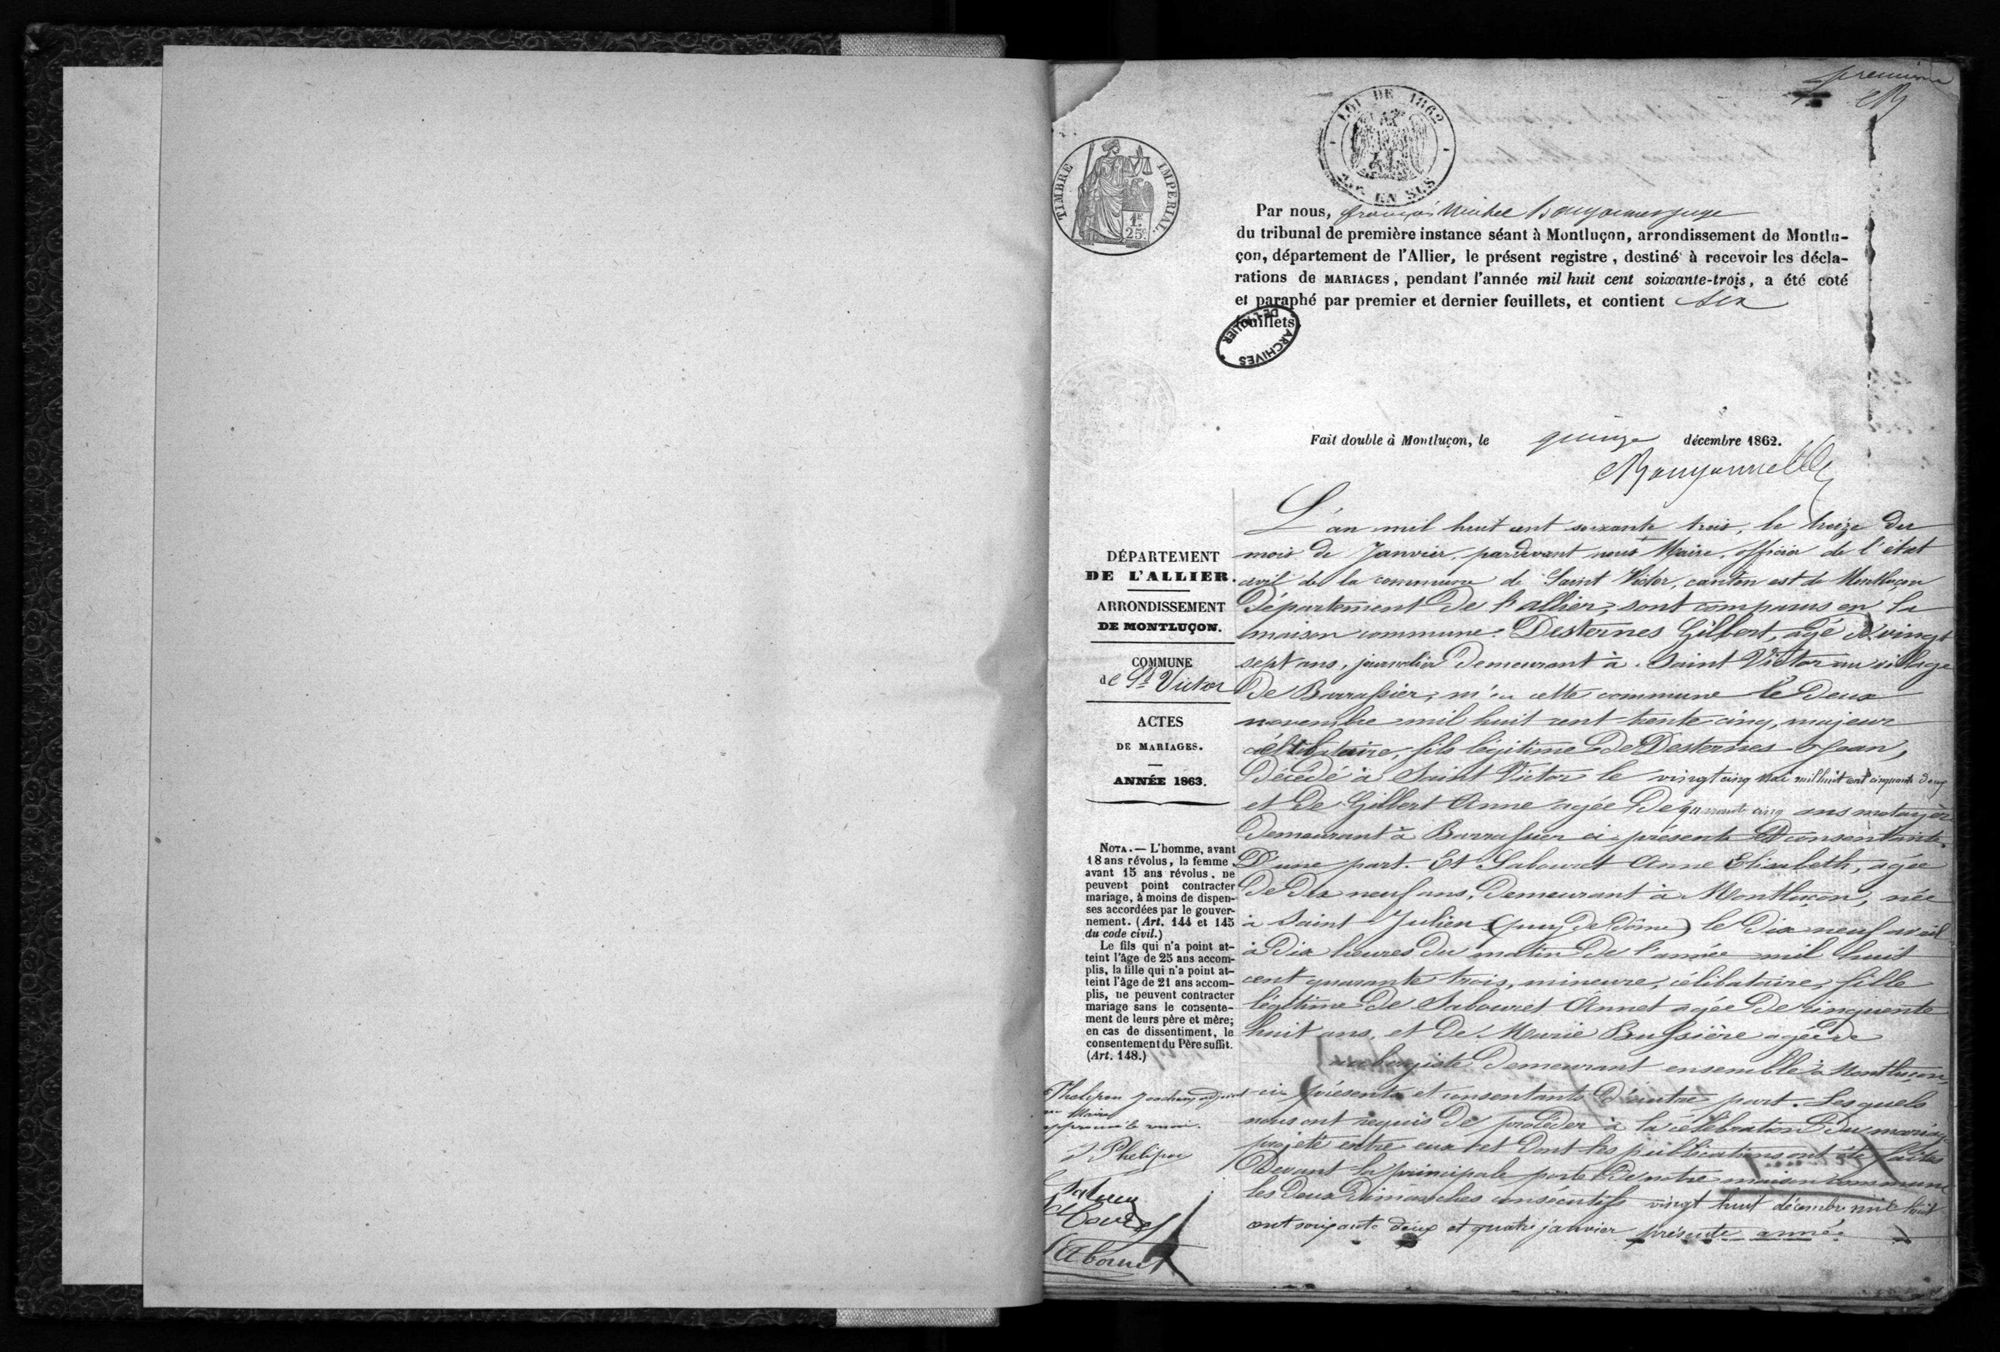 première
LOI DE 1862
25c EN SUS
TIMBRE IMPÉRIAL
1F.
25c
Par nous, françois Michel juge
du tribunal de première instance séant à Montluçon, arrondissement de Montlu-
çon, département de l'Allier, le présent registre, destiné à recevoir les décla-
rations de MARIAGES, pendant l'année mil huit cent soixante-trois, a été coté
et paraphé par premier et dernier feuillets, et contient six
feuillets.
ARCHIVES DE L'ALLIER
Fait double à Montluçon, le quinze décembre 1862.
DÉPARTEMENT
DE L'ALLIER.
ARRONDISSEMENT
DE MONTLUÇON.
COMMUNE
de St Victor
ACTES
DE MARIAGES.
ANNÉE 1863.
NOTA. — L'homme, avant
18 ans révolus, la femme
avant 15 ans révolus, ne
peuvent point contracter
mariage, à moins de dispen-
ses accordées par le gouver-
nement. (Art. 144 et 145
du code civil.)
Le fils qui n'a point at-
teint l'âge de 25 ans accom-
plis, la fille qui n'a point at-
teint l'âge de 21 ans accom-
plis, ne peuvent contracter
mariage sans le consente-
ment de leurs père et mère;
en cas de dissentiment, le
consentement du Père suffit.
(Art. 148.)
Phelipon adjoint
au Maire
J Phelipon
Sabouret
L'an mil huit cent soixante trois, le treize du
mois de Janvier, pardevant nous Maire, officier de l'état
civil de la commune de Saint Victor, canton est de Montluçon
Département De l'allier, sont comparus en la
maison commune. Desternes Gilbert, agé de vingt
sept ans, journalier demeurant à Saint Victor au village
De Barrassier, né en cette commune le Deux
novembre mil huit cent trente cinq, majeur
célibataire, fils légitime De Desternes Jean,
Décédé à Saint Victor le vingt cinq mai mil huit cent cinquante deux
et De Gilbert Anne agée De quarante cinq ans metayère
Demeurant à Barrassier ci présente Et consentante
D'une part. Et Sabouret Anne Elisabeth, agée
De Dix neuf ans, Demeurant à Montluçon, née
à Saint Julien (puy De Dôme) le Dix neuf avril
à Dix heures Du matin De l'année mil huit
cent quarante trois, mineure, célibataire, fille
légitime De Sabouret Annet agée De cinquante
huit ans, et De Marie Bussière agée de
aubergiste Demeurant ensemble à Montluçon
ici présents et consentants D'autre part. Lesquels
nous ont requis De procéder à la célébration Du mariage
projeté entre eux et Dont les publications ont été faites
Devant la principale porte De notre maison commune
les Deux Dimanches consécutifs vingt huit décembre mil huit
cent soixante deux et quatre janvier présente année.